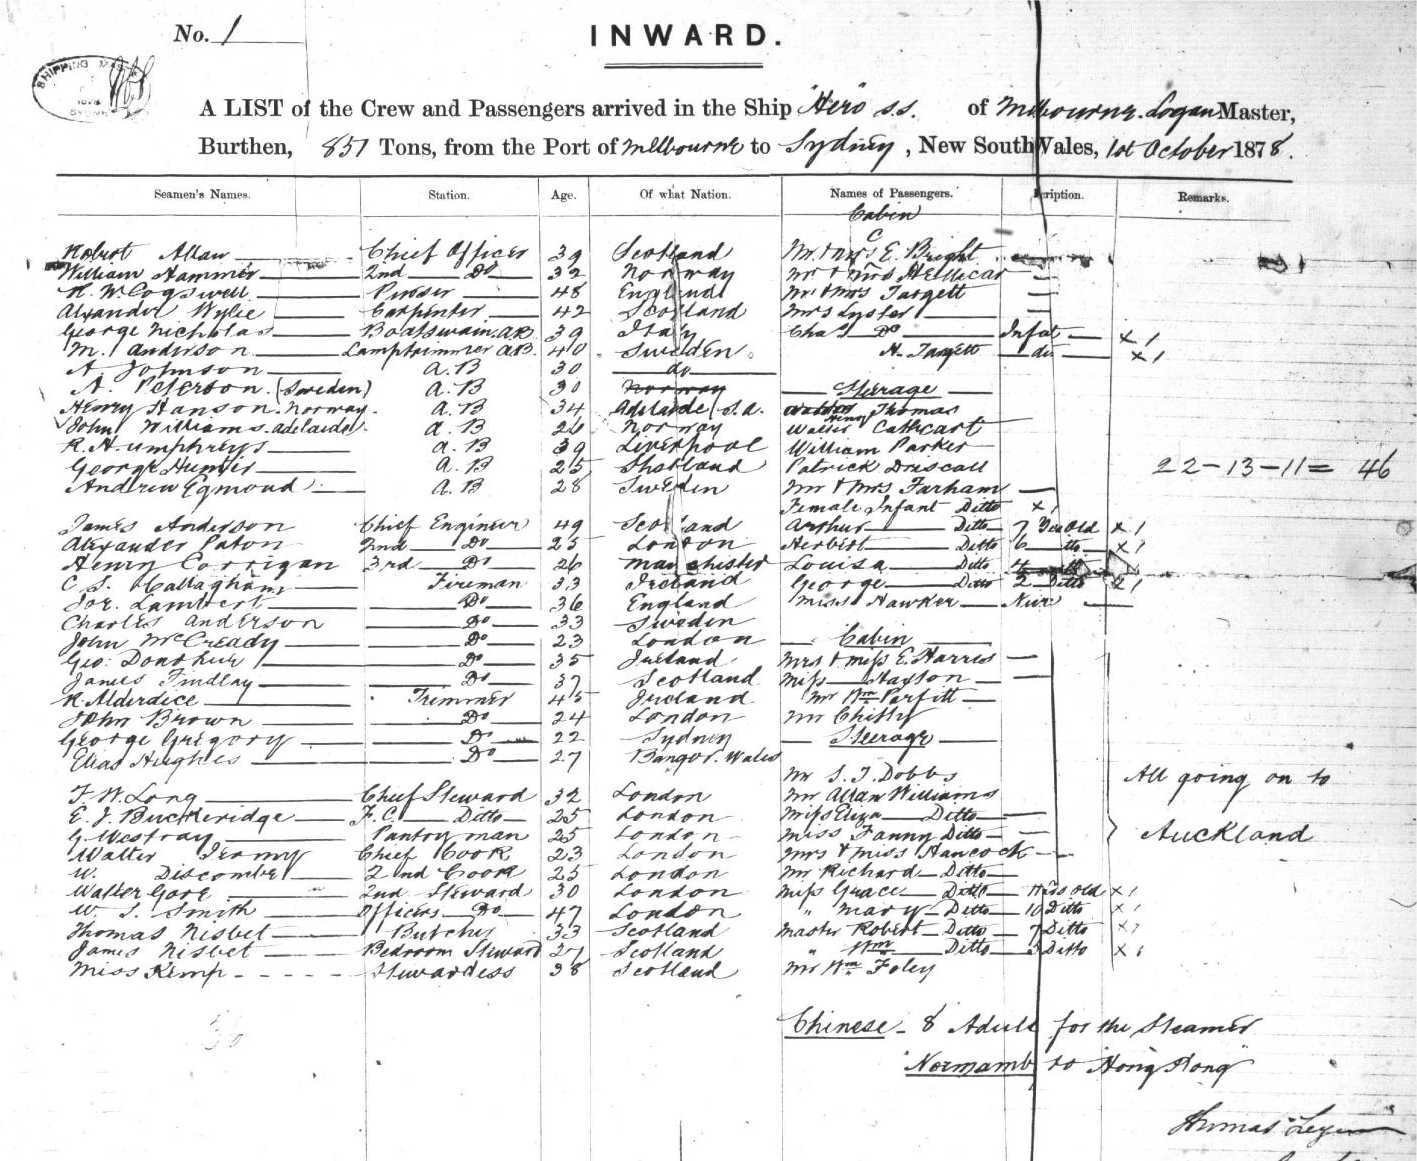 No. 1
INWARD.
SHIPPING MAS
SYDNEY
A LIST of the Crew and Passengers arrived in the Ship "Hero" s.s. of Melbourne. Logan Master,
Burthen, 851 Tons, from the Port of Melbourne to Sydney, New South Wales, 1st October 1878.
Seamen's Names. Station. Age. Of what Nation. Names of Passengers. cription. Remarks.
Cabin
Robert Allan Chief Officer 39 Scotland Mr & Mrs E. Bright
William Hammer 2nd Do 32 Norway Mr & Mrs Hellicar
H. W. Cogswell Purser 48 England Mr & Mrs Targett
Alexander Wylie Carpenter 42 Scotland Mrs Lyster
George Nicholas Boatswain. AB 39 Italy Chas Do Infat x 1
M. Anderson Lamptrimmer AB. 40 Sweden. H. Targett do x 1
A Johnson A. B 30 do
A. Peterson. (Sweden) A. B 30 Norway Steerage
Henry Hanson. Norway. A. B 34 Adelaide S. A. Thomas
John Williams. Adelaide A. B 26 Norway Walter Henry Cathcart
R. Humphreys A. B 39 Liverpool William Parker
George Hunter A. B 25 Shetland Patrick Driscall 22-13-11= 46
Andrew Egmond A. B 28 Sweden Mr & Mrs Farham
Female Infant Ditto x 1
James Anderson Chief Engineer 49 Scotland Arthur Ditto 7 Yrs Old x 1
Alexander Paton 2nd Do 25 London Herbert Ditto 6 tto x 1
Henry Corrigan 3rd Do 26 Manchester Louisa Ditto 4
C S. Callaghan Fireman 33 Ireland George Ditto 2 Ditto x 1
Jos. Lambert Do 36 England Miss Hawker
Charles Anderson Do 33 Sweden
John McCready Do 23 London Cabin
Geo: Donohue Do 35 Ireland Mrs & Miss E. Harris
James Findlay Do 37 Scotland Miss Haxson
R. Alderdice Trimmer 45 Ireland Mr Wm Parfitt
John Brown Do 24 London Mr Chitty
George Gregory Do 22 Sydney Steerage
Elias Hughes Do 27 Bangor. Wales
Mr S. T. Dobbs All going on to
F. W. Long Chief Steward 32 London Mr Allan Williams
E. J. Buckeridge F. C. Ditto 25 London Miss Eliza Ditto
G. Westray Pantry man 25 London Miss Fanny Ditto Auckland
Walter Jermy Chief Cook 23 London Mrs & Miss Hancock
W. Discombe 2nd Cook 25 London Mr Richard Ditto
Walter Gore 2nd Steward 30 London Miss Grace Ditto 11 Yrs Old x 1
W. S. Smith Officers Do 47 London " Mary Ditto 10 Ditto x 1
Thomas Nisbet Butcher 33 Scotland Master Robert Ditto 7 Ditto x 1
James Nisbet Bedroom Steward 27 Scotland " Wm Ditto 3 Ditto x 1
Miss Kemp Stewardess 38 Scotland Mr Wm Foley
36
Chinese - 8 Adult for the Steamer
"Normanby" to "Hong Kong"
Thomas Logan